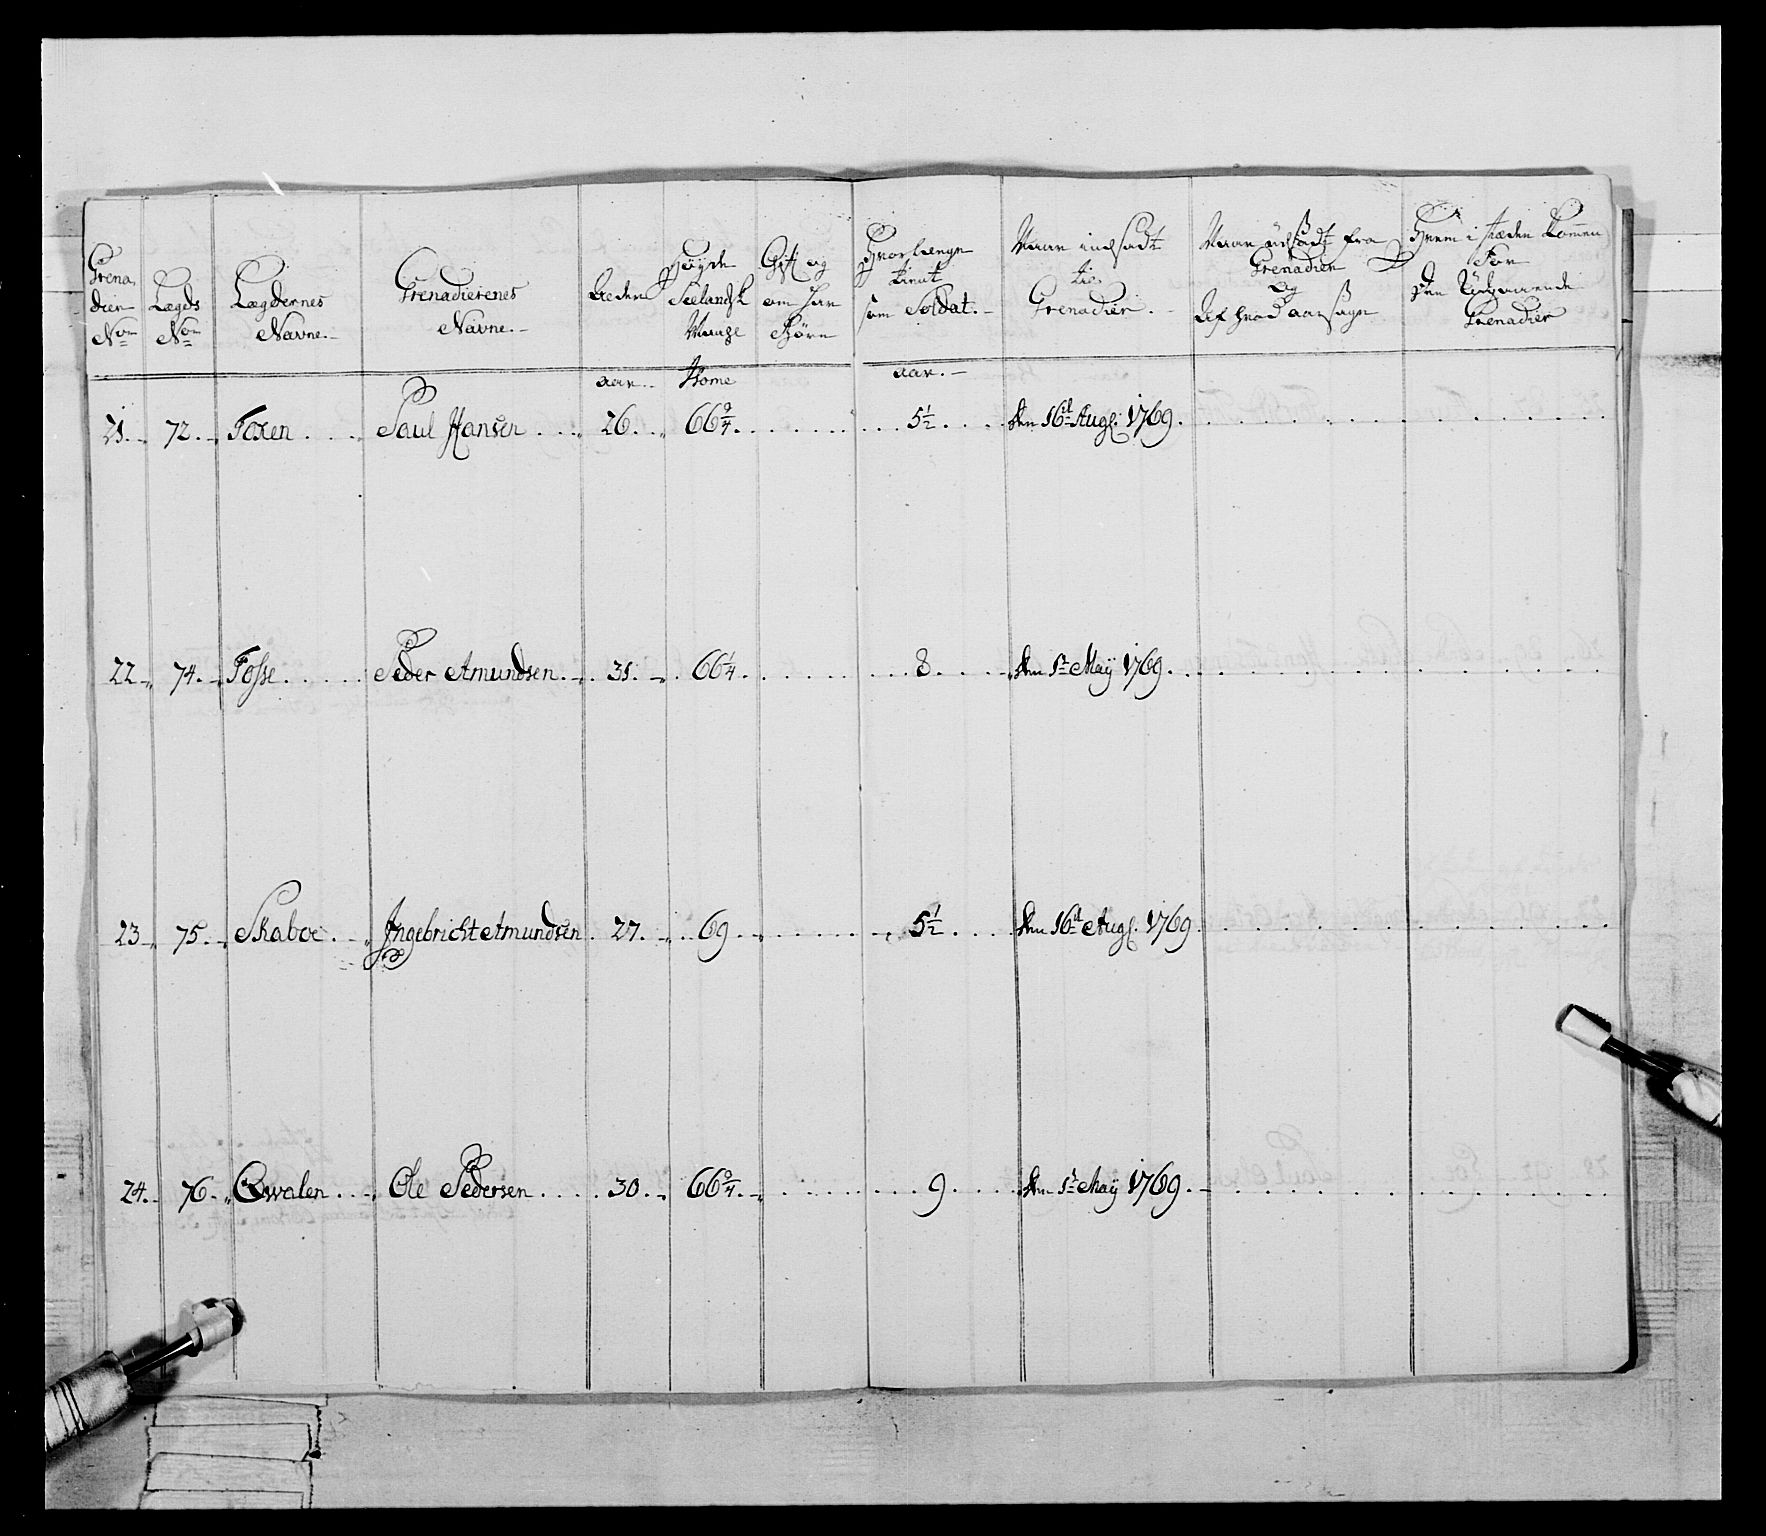 Grena
dier
No
Lægds
No
Lægdernes
Navne.
Grenadierenes
Navne.
Høyde
Seelandsk
Gift og
om har
Børn
Hvorlænge
tient
som Soldat.
Naar indsadt
til
Grenadier.
Naar udsadt fra
Grenadier
og
Af hvad aarsage
Hvem i stæden kommen
For
Den Udgaaende
Grenadier
aar. Tome aar.
21. 72. Foxen Paul Hansen 26. 66 2/4 5 1/2 den 16d Aug. 1769.
22. 74. Fosse Peder Amundsen. 31. 66 1/4 8. den 1t Maÿ 1769.
23. 75. Skaboe Ingebricht Amundsen 27. 69 5 1/2 den 16d Aug. 1769
24. 76. Qwalen Ole Pedersen 30. 66 2/4 9. den 1t Maÿ 1769.